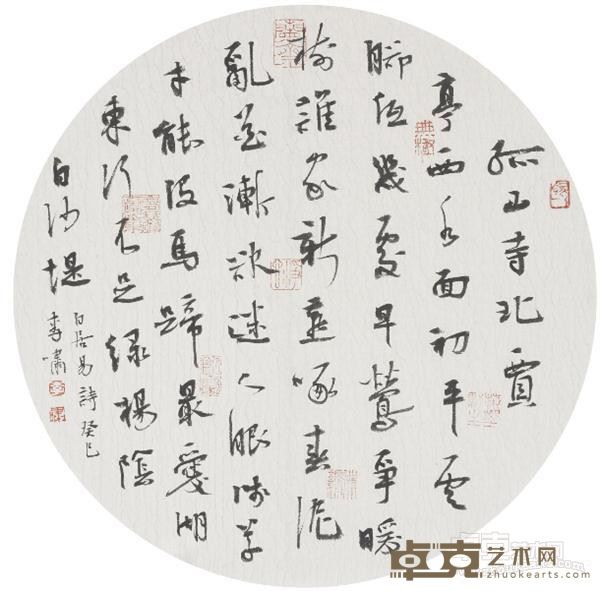 孤山寺北賈
亭西水面初平雲
腳低幾處早鶯爭暖
樹誰家新燕啄春泥
亂花漸欲迷人眼淺草
才能沒馬蹄最愛湖
東行不足綠楊陰
白沙堤
白居易詩癸巳
李嘯
卓克艺术网
www.zhuokearts.com